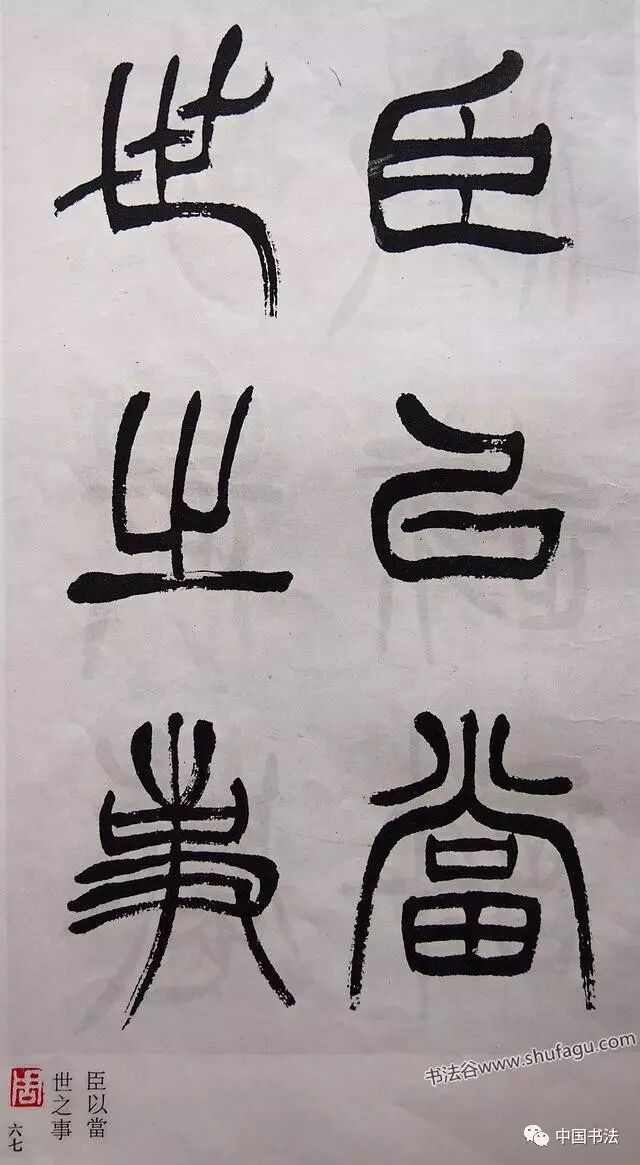 臣以當
世之事
臣以當
世之事
六七
书法谷www.shufagu.com
中国书法